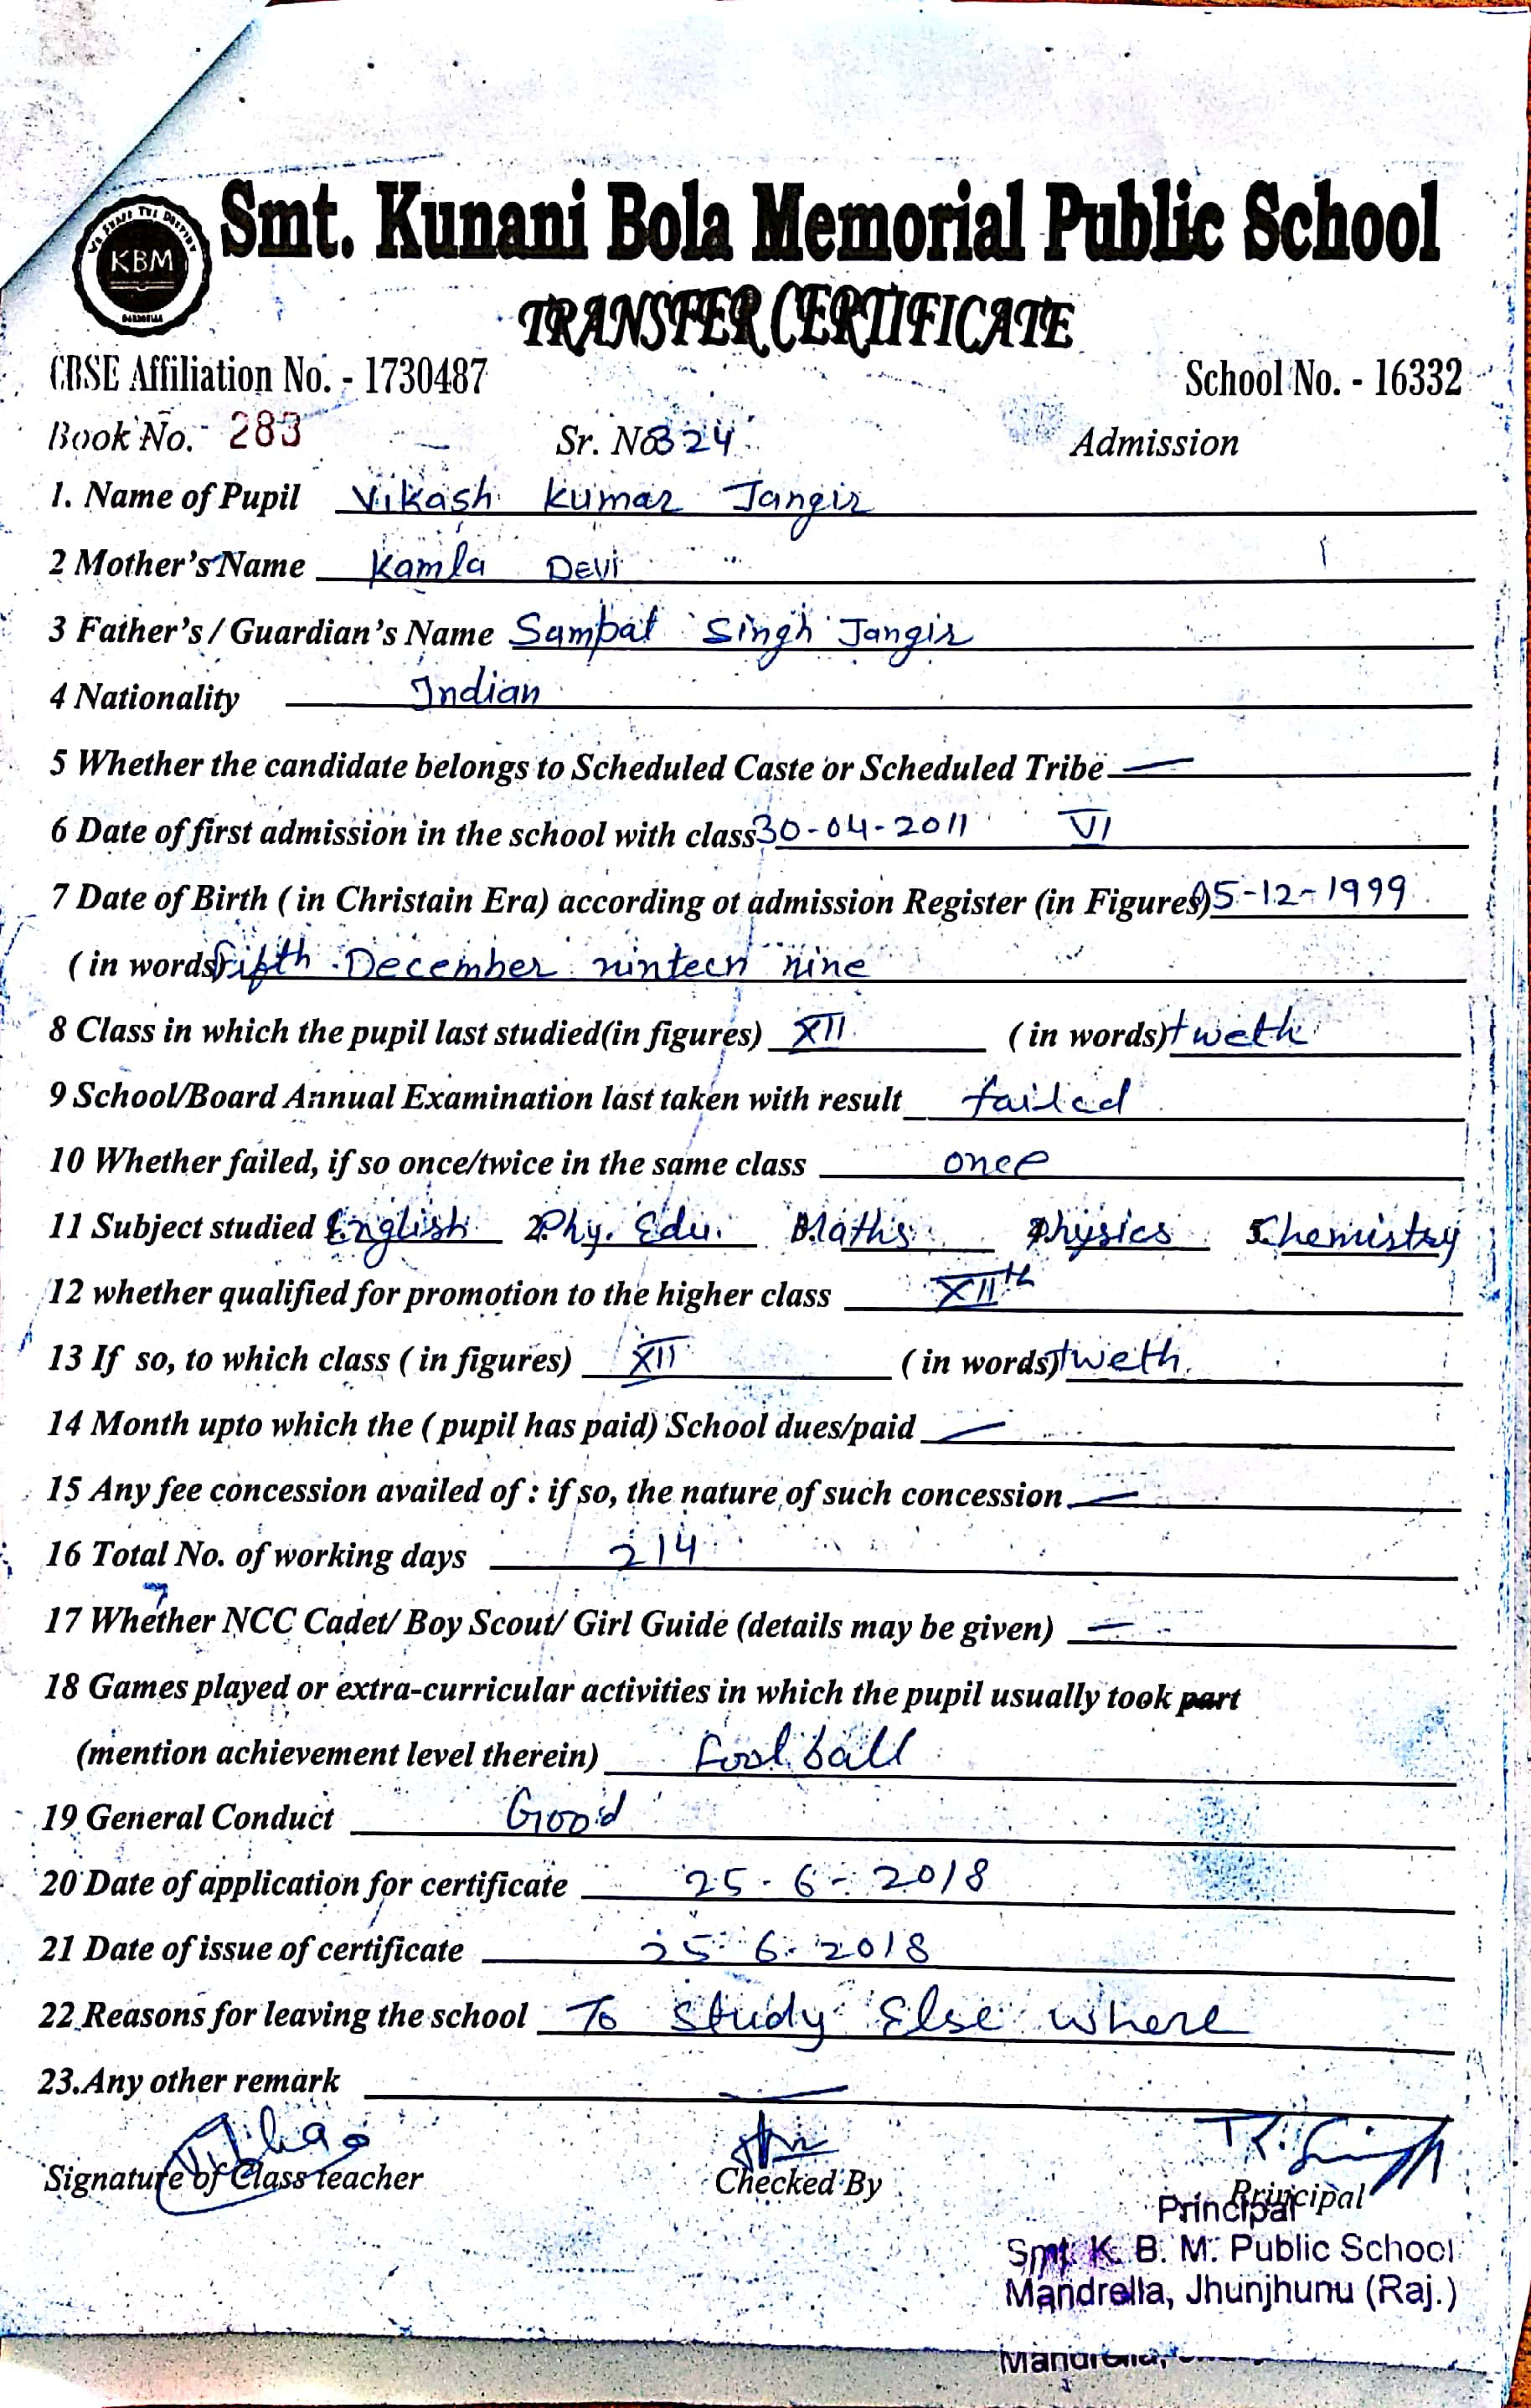 KBM
Smt. Kunani Bola Memorial Public School
TRANSFER CERTIFICATE
CBSE Affiliation No. - 1730487 School No. - 16332
Book No. 283 Sr. No 324 Admission
1. Name of Pupil Vikash Kumar Jangir
2 Mother's Name Kamla Devi
3 Father's / Guardian's Name Sampat Singh Jangir
4 Nationality Indian
5 Whether the candidate belongs to Scheduled Caste or Scheduled Tribe —
6 Date of first admission in the school with class 30-04-2011 VI
7 Date of Birth ( in Christain Era) according ot admission Register (in Figures) 05-12-1999
( in words) fifth December ninteen nine
8 Class in which the pupil last studied(in figures) XII ( in words) tweth
9 School/Board Annual Examination last taken with result failed
10 Whether failed, if so once/twice in the same class once
11 Subject studied 1. English 2. Phy. Edu. 3. Maths 4. Physics 5. Chemistry
12 whether qualified for promotion to the higher class XIIth
13 If so, to which class ( in figures) XII ( in words) tweth
14 Month upto which the ( pupil has paid) School dues/paid —
15 Any fee concession availed of : if so, the nature of such concession —
16 Total No. of working days 214
17 Whether NCC Cadet/ Boy Scout/ Girl Guide (details may be given) —
18 Games played or extra-curricular activities in which the pupil usually took part
(mention achievement level therein) Football
19 General Conduct Good
20 Date of application for certificate 25-6-2018
21 Date of issue of certificate 25-6-2018
22 Reasons for leaving the school To Study Else where
23.Any other remark —
Signature of Class teacher Checked By Principal
Principal
Smt. K. B. M. Public School
Mandrella, Jhunjhunu (Raj.)